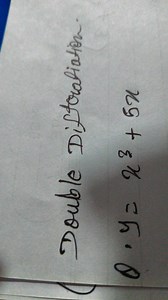 ( Double Differatiation.
Q. y = x³ + 5x